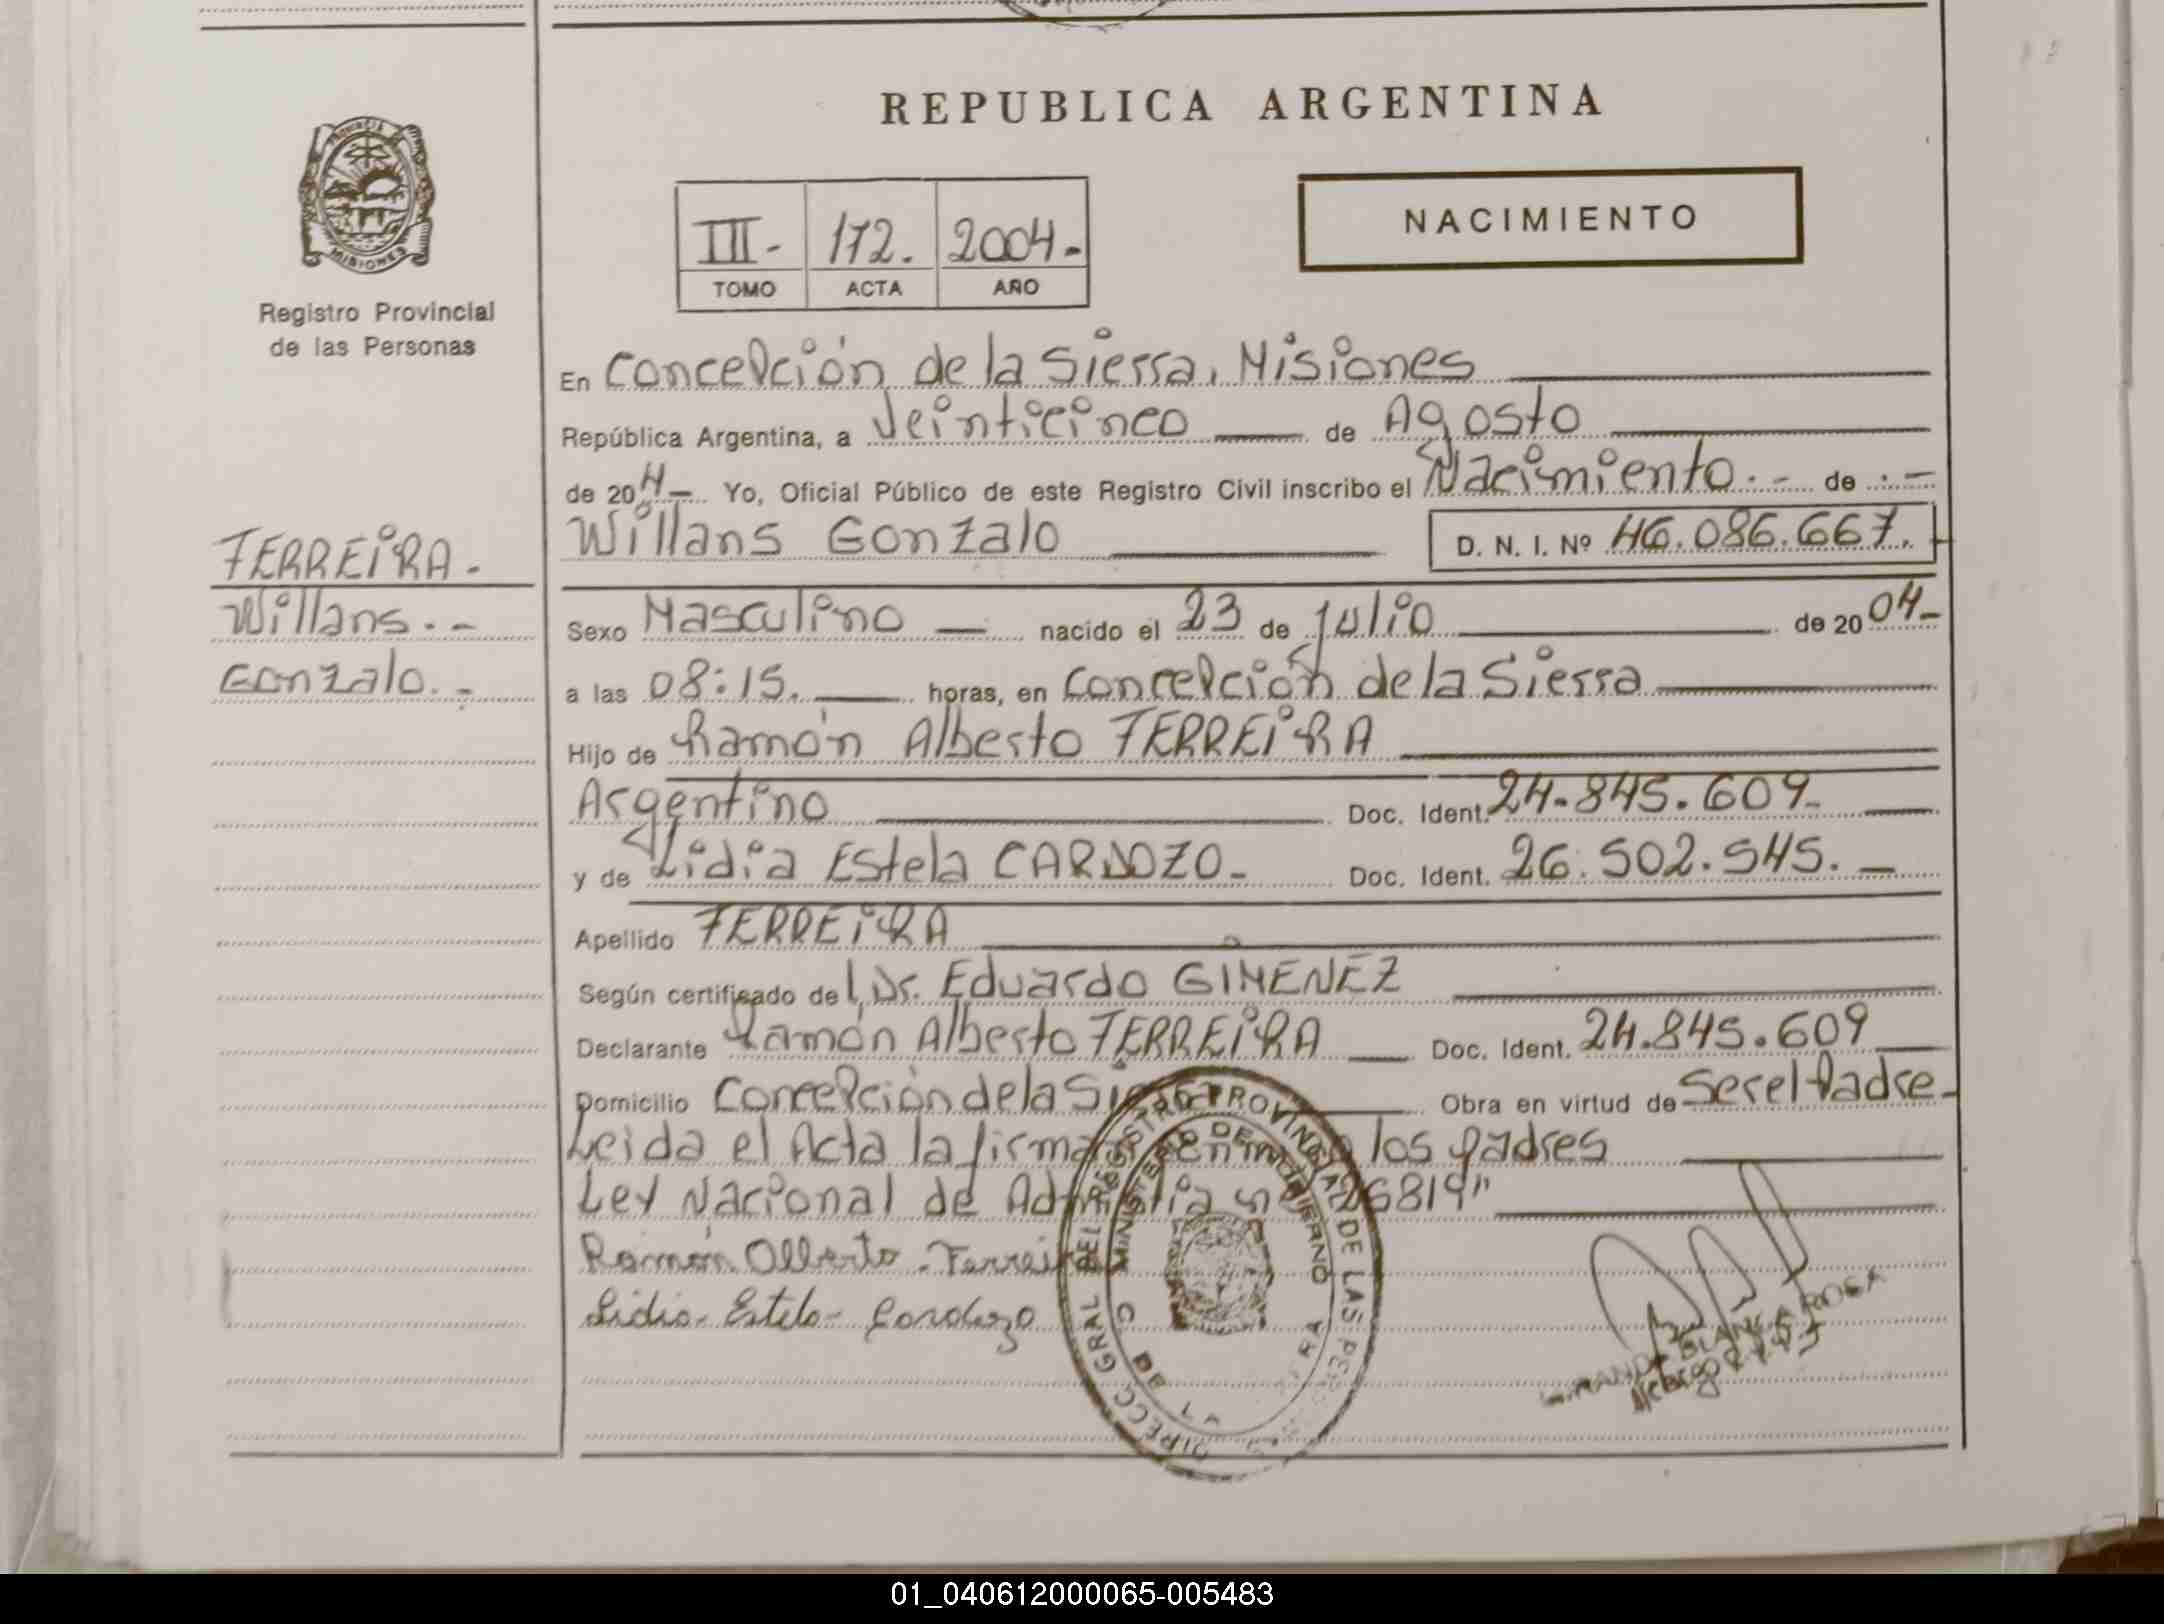 REPUBLICA ARGENTINA
PROVINCIA
MISIONES
Registro Provincial
de las Personas
III.- 172. 2004.-
TOMO ACTA AÑO
NACIMIENTO
En Concepción de la Sierra, Misiones
República Argentina, a Veinticinco de Agosto
de 20 4 Yo, Oficial Público de este Registro Civil inscribo el Nacimiento.- de .-
Willans Gonzalo D. N. I. Nº 46.086.667.
FERREIRA.
Willans.-
Gonzalo.-
Sexo Masculino nacido el 23 de julio de 20 04-
a las 08:15. horas, en Concepción de la Sierra
Hijo de Ramón Alberto FERREIRA
Argentino Doc. Ident. 24.845.609.
y de Lidia Estela CARDOZO Doc. Ident. 26.502.545.
Apellido FERREIRA
Según certificado del Dr. Eduardo GIMENEZ
Declarante Ramón Alberto FERREIRA Doc. Ident. 24.845.609
Domicilio Concepción de la Obra en virtud de Ser el Padre-
Leida el Acta la los padres
Ley Nacional de 26819"
Ramón Alberto Ferreira
Lidia Estela Cardozo
DIRECC. GRAL. DEL REGISTRO PROVINCIAL DE LAS
MINISTERIO DE GOBIERNO
BLANCA ROSA
01_040612000065-005483